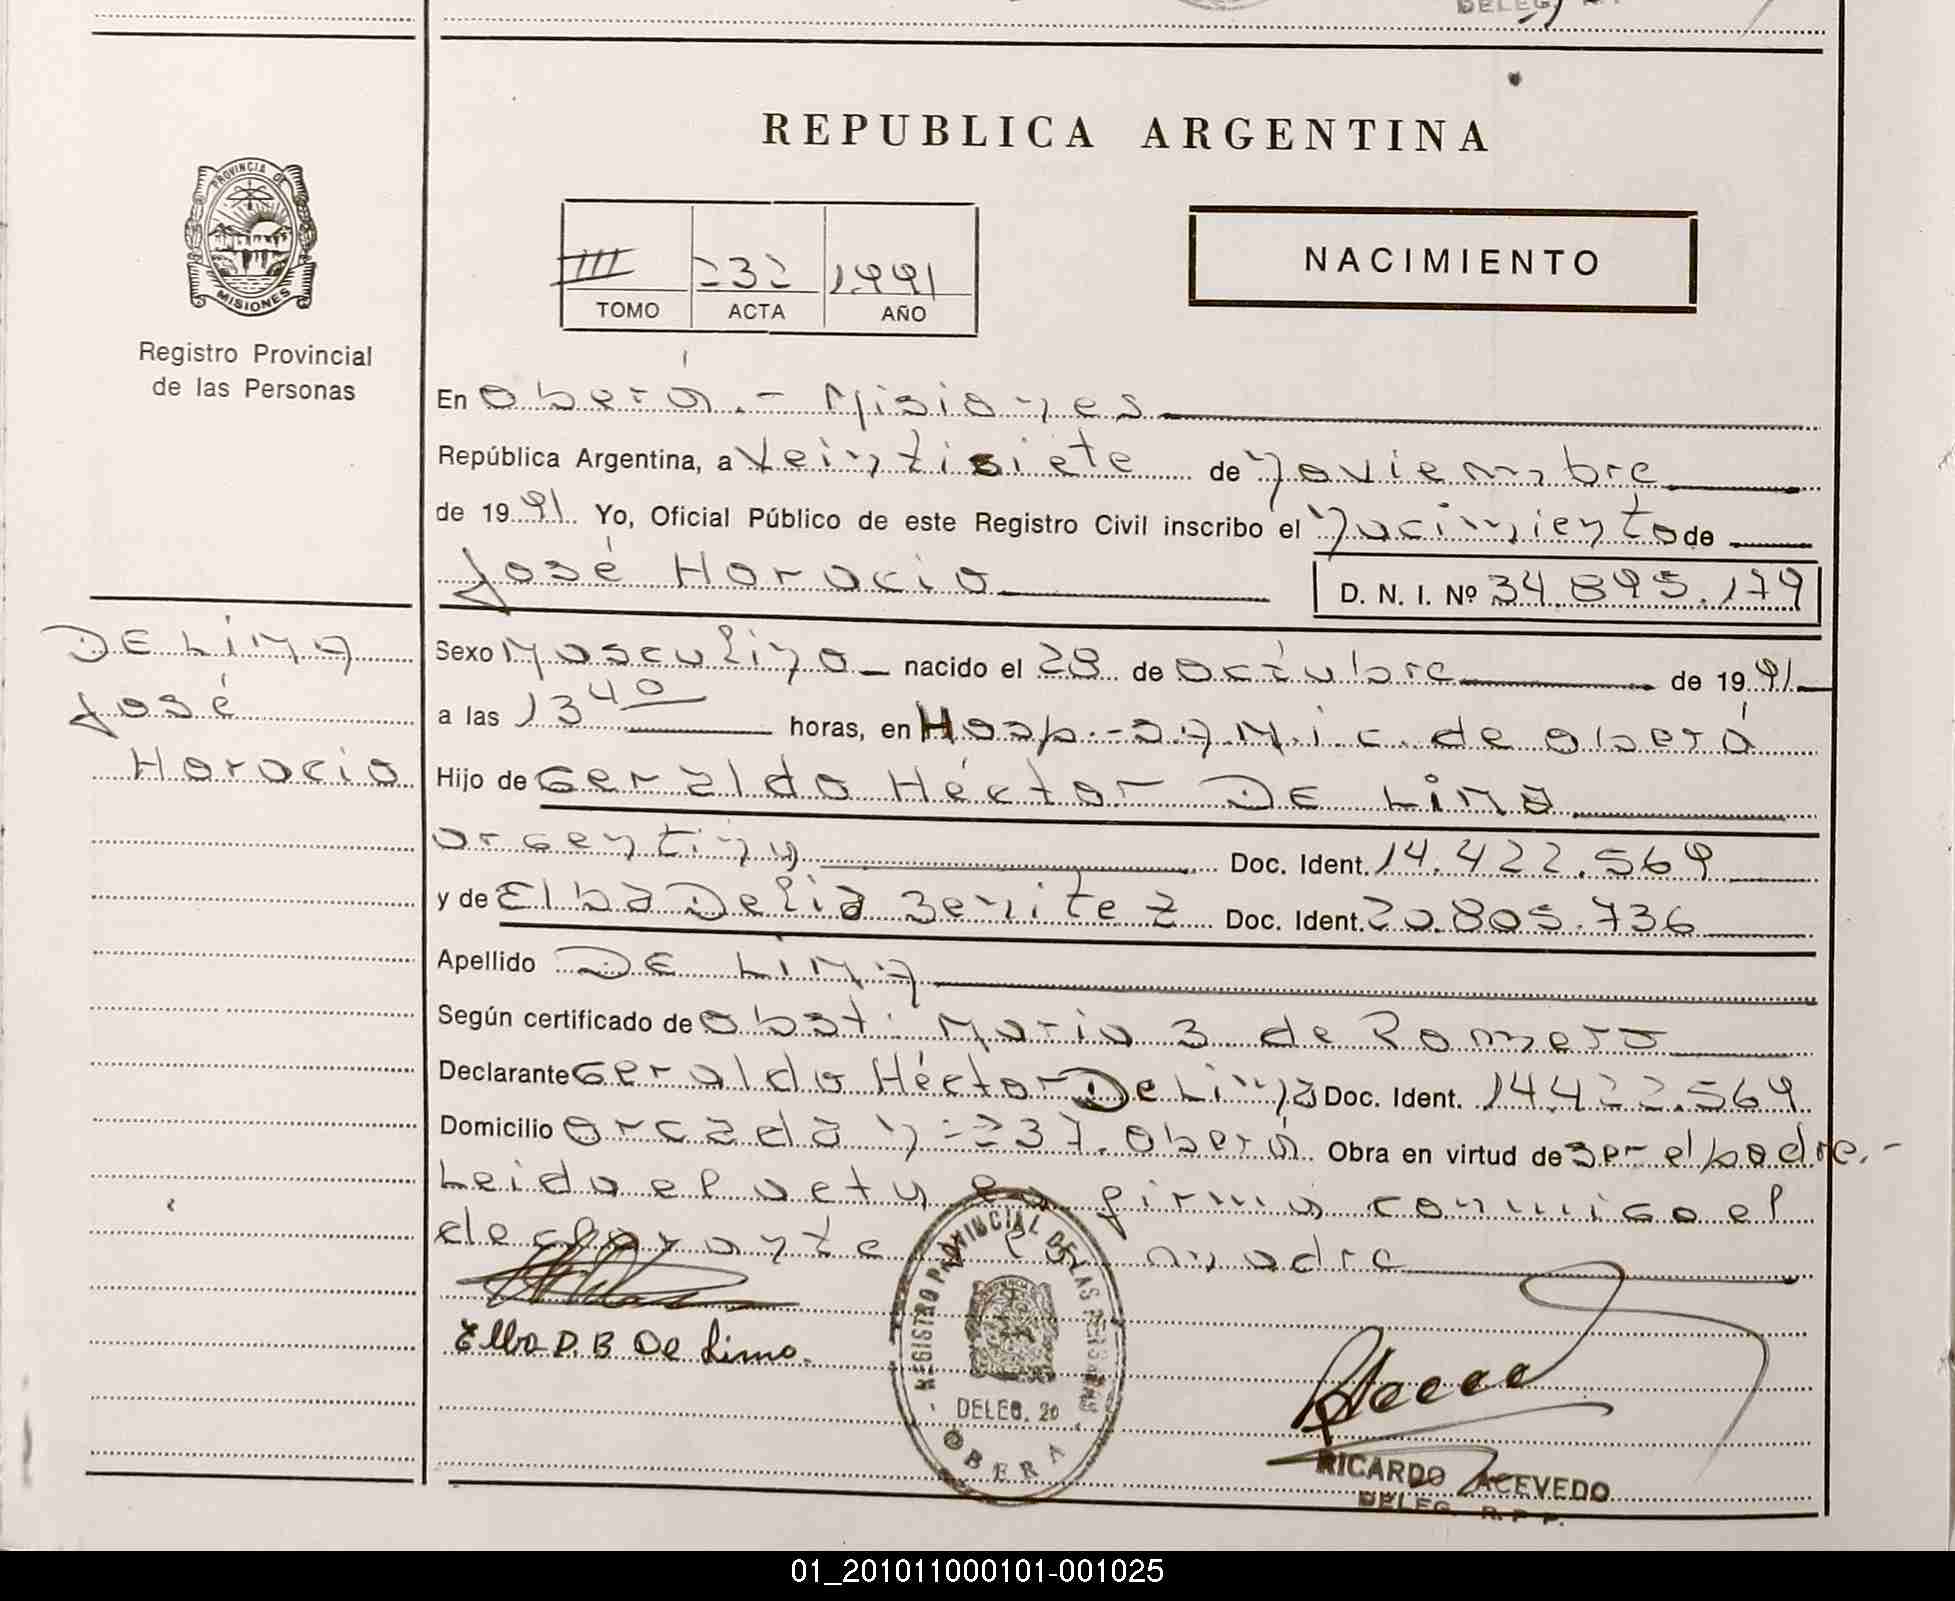 DELEG.
REPUBLICA ARGENTINA
PROVINCIA DE
MISIONES
Registro Provincial
de las Personas
III 232 1.991
TOMO ACTA AÑO
NACIMIENTO
En Oberá.- Misiones
República Argentina, a Veintisiete de Noviembre
de 1991. Yo, Oficial Público de este Registro Civil inscribo el Nacimiento de
José Horacio D. N. I. Nº 34.895.179
DE LIMA
José
Horacio
Sexo Masculino nacido el 28 de Octubre de 1991
a las 13 40 horas, en Hosp.- de Oberá
Hijo de Geraldo Héctor DE LIMA
argentino Doc. Ident. 14.422.569
y de Elba Delia Benitez Doc. Ident. 20.805.736
Apellido DE LIMA
Según certificado de Obst. Maria B de Romero
Declarante Geraldo Héctor De Lima Doc. Ident. 14.422.569
Domicilio 237. Oberá Obra en virtud de ser el padre.-
Leida el acta la firma conmigo el
declarante y la madre
Elba D. B De Lima.
REGISTRO PROVINCIAL DE LAS PERSONAS
DELEG. 20
OBERA
RICARDO ACEVEDO
DELEG. R. P. P.
01_201011000101-001025